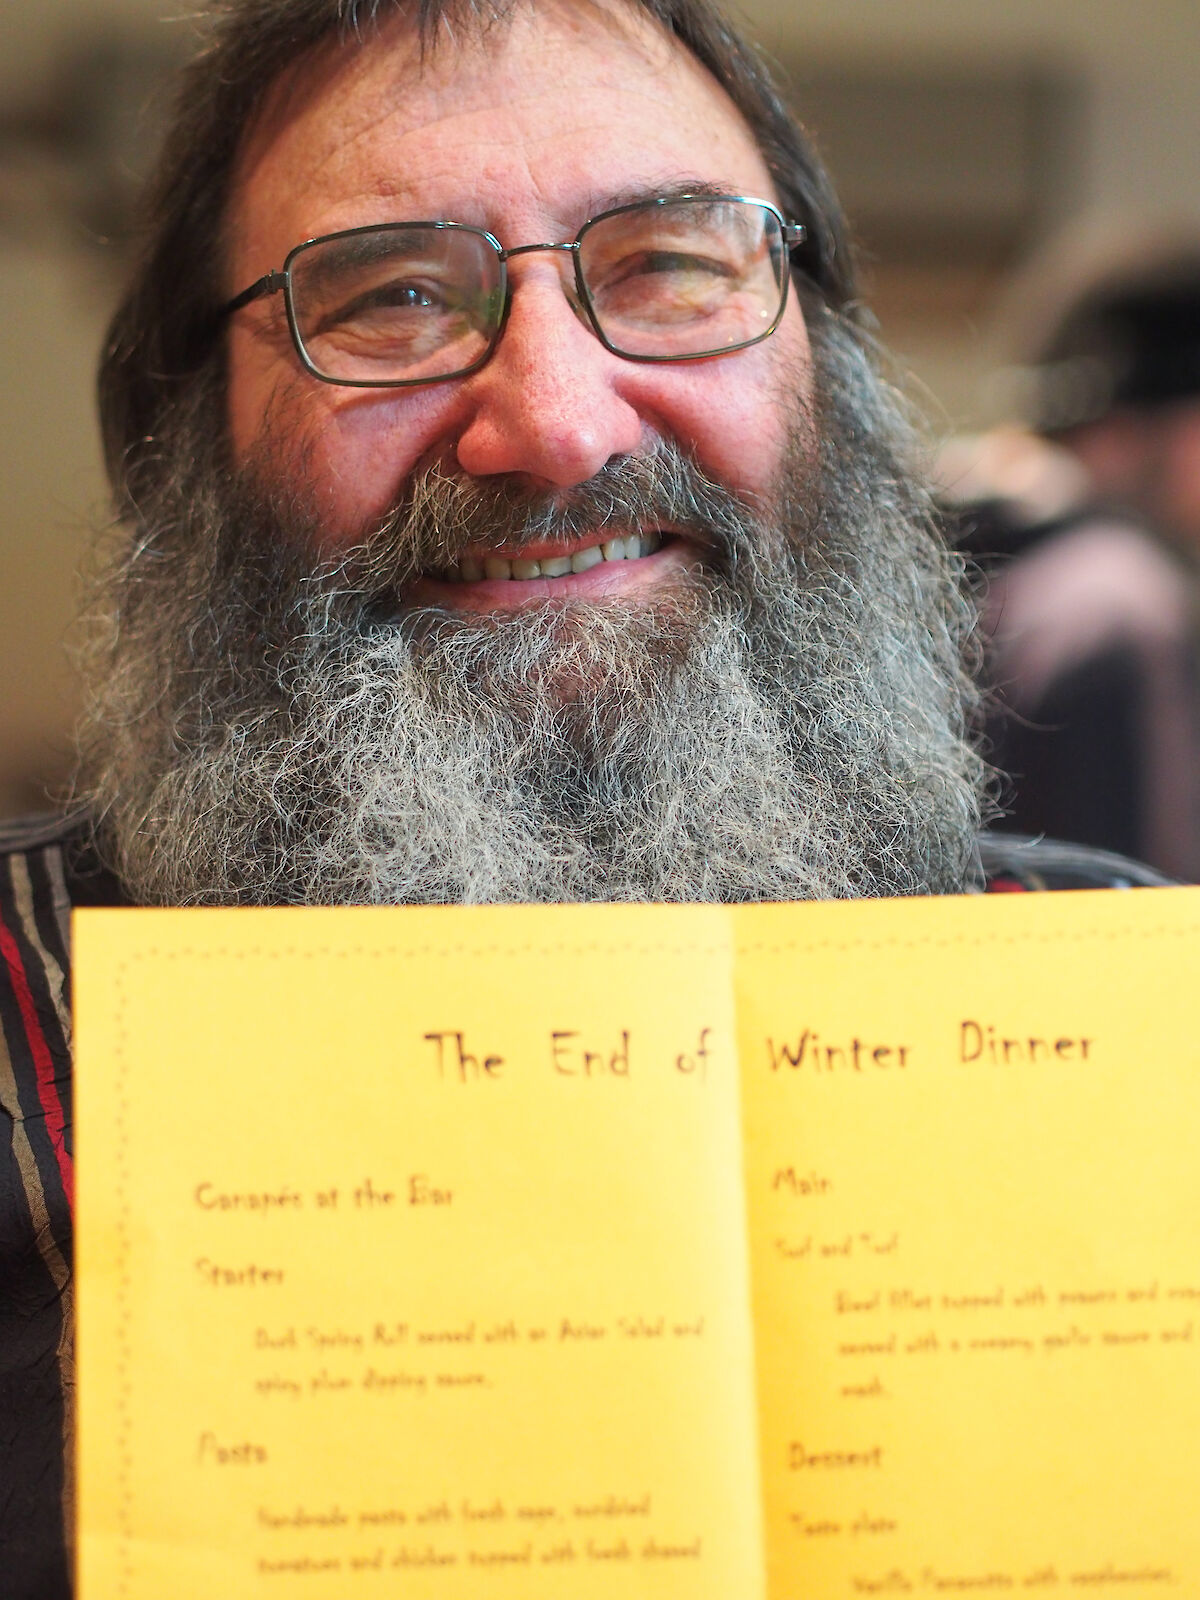 The End of Winter Dinner
Canapés at the Bar
Starter
Duck Spring Roll served with an Asian Salad and
spicy plum dipping sauce.
Pasta
Handmade pasta with fresh sage, sundried
tomatoes and chicken topped with fresh shaved
Main
Surf and Turf
Beef fillet topped with prawns and
served with a creamy garlic sauce and
mash.
Dessert
Taste plate
Vanilla Pannacotta with raspberries,